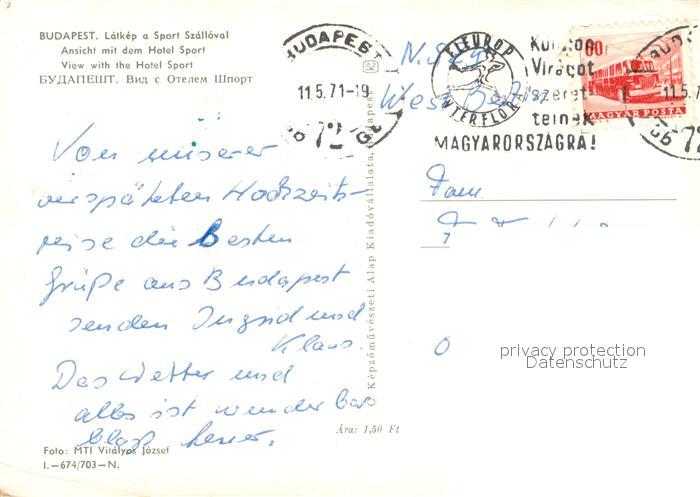 BUDAPEST. Látkép a Sport Szállóval
Ansicht mit dem Hotel Sport
View with the Hotel Sport
БУДАПЕШТ. Вид с Отелем Шпорт
Von unserer
verspäteten Hochzeits-
reise die besten
Grüße aus Budapest
senden Ingrid und
Klaus.
Das Wetter und
alles ist wunderbar
bloß teuer.
Foto: MTI Vitályos József
I.—674/703—N.
Ára: 1,50 Ft
Képzőművészeti Alap Kiadóvállalata, Budapest
BUDAPEST
11.5.71-19
72
52
West Berlin
FLEUROP
INTERFLORA
Küldjön
Virágot
szeret-
teinek
MAGYARORSZÁGRA!
60f
MAGYAR POSTA
11.5.7
72
Fam.
privacy protection
Datenschutz